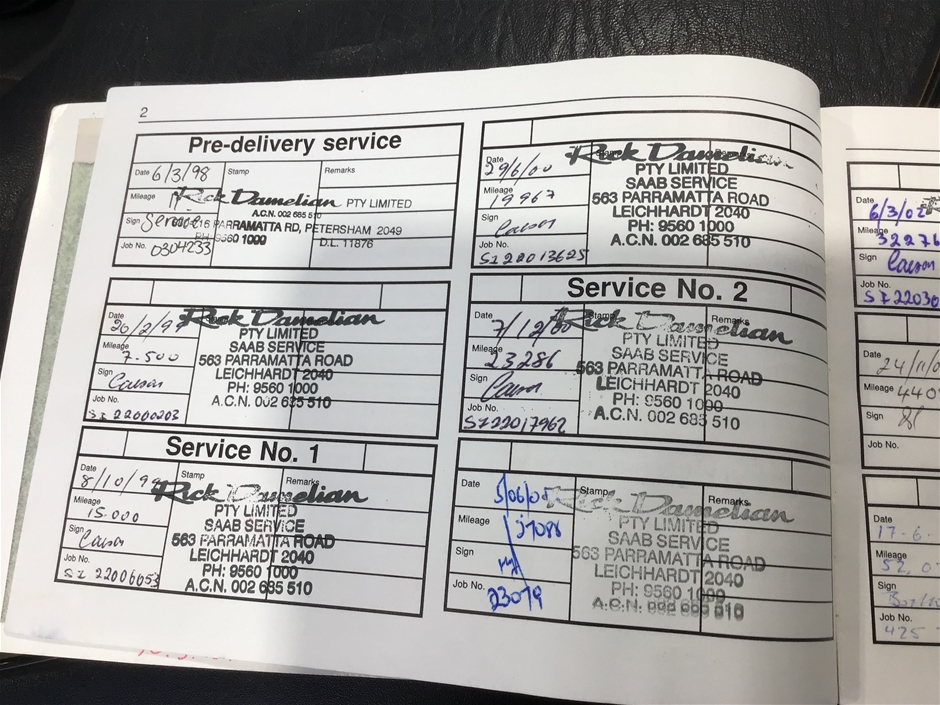 2
Pre-delivery service
Date 6/3/98 Stamp Remarks
Mileage Rick Damelian PTY LIMITED
A.C.N. 002 685 510
Sign PARRAMATTA RD, PETERSHAM 2049
PH: 9560 1000
Job No. 0304233 D.L. 11876
Date 26/2/99 Rick Damelian
PTY LIMITED
Mileage 7.500 SAAB SERVICE
563 PARRAMATTA ROAD
Sign Carson LEICHHARDT 2040
PH: 9560 1000
Job No. A.C.N. 002 685 510
SI 22000203
Service No. 1
Date 8/10/99 Stamp Remarks
Rick Damelian
Mileage 15.000 PTY LIMITED
SAAB SERVICE
Sign Carson 563 PARRAMATTA ROAD
LEICHHARDT 2040
Job No. PH: 9560 1000
SI 22006053 A.C.N. 002 685 510
Date 29/6/00 Rick Damelian
PTY LIMITED
Mileage 19967 SAAB SERVICE
563 PARRAMATTA ROAD
Sign Carson LEICHHARDT 2040
PH: 9560 1000
Job No. A.C.N. 002 685 510
SI 22013625
Service No. 2
Date 7/12/00 Stamp Remarks
Rick Damelian
Mileage 23286 PTY LIMITED
SAAB SERVICE
Sign Carson 563 PARRAMATTA ROAD
LEICHHARDT 2040
Job No. PH: 9560 1000
SI22017962 A.C.N. 002 685 510
Date 5/06/01 Stamp Remarks
Rick Damelian
Mileage 27088 PTY LIMITED
SAAB SERVICE
Sign 563 PARRAMATTA ROAD
LEICHHARDT 2040
Job No. 23079 PH: 9560 1000
A.C.N. 002 685 510
Date 6/3/02
Mileage 32276
Sign Carson
Job No.
SI 22030
Date
24/11/0
Mileage 440
Sign
Job No.
Date
17-6-
Mileage
52,0
Sign
Job No.
425